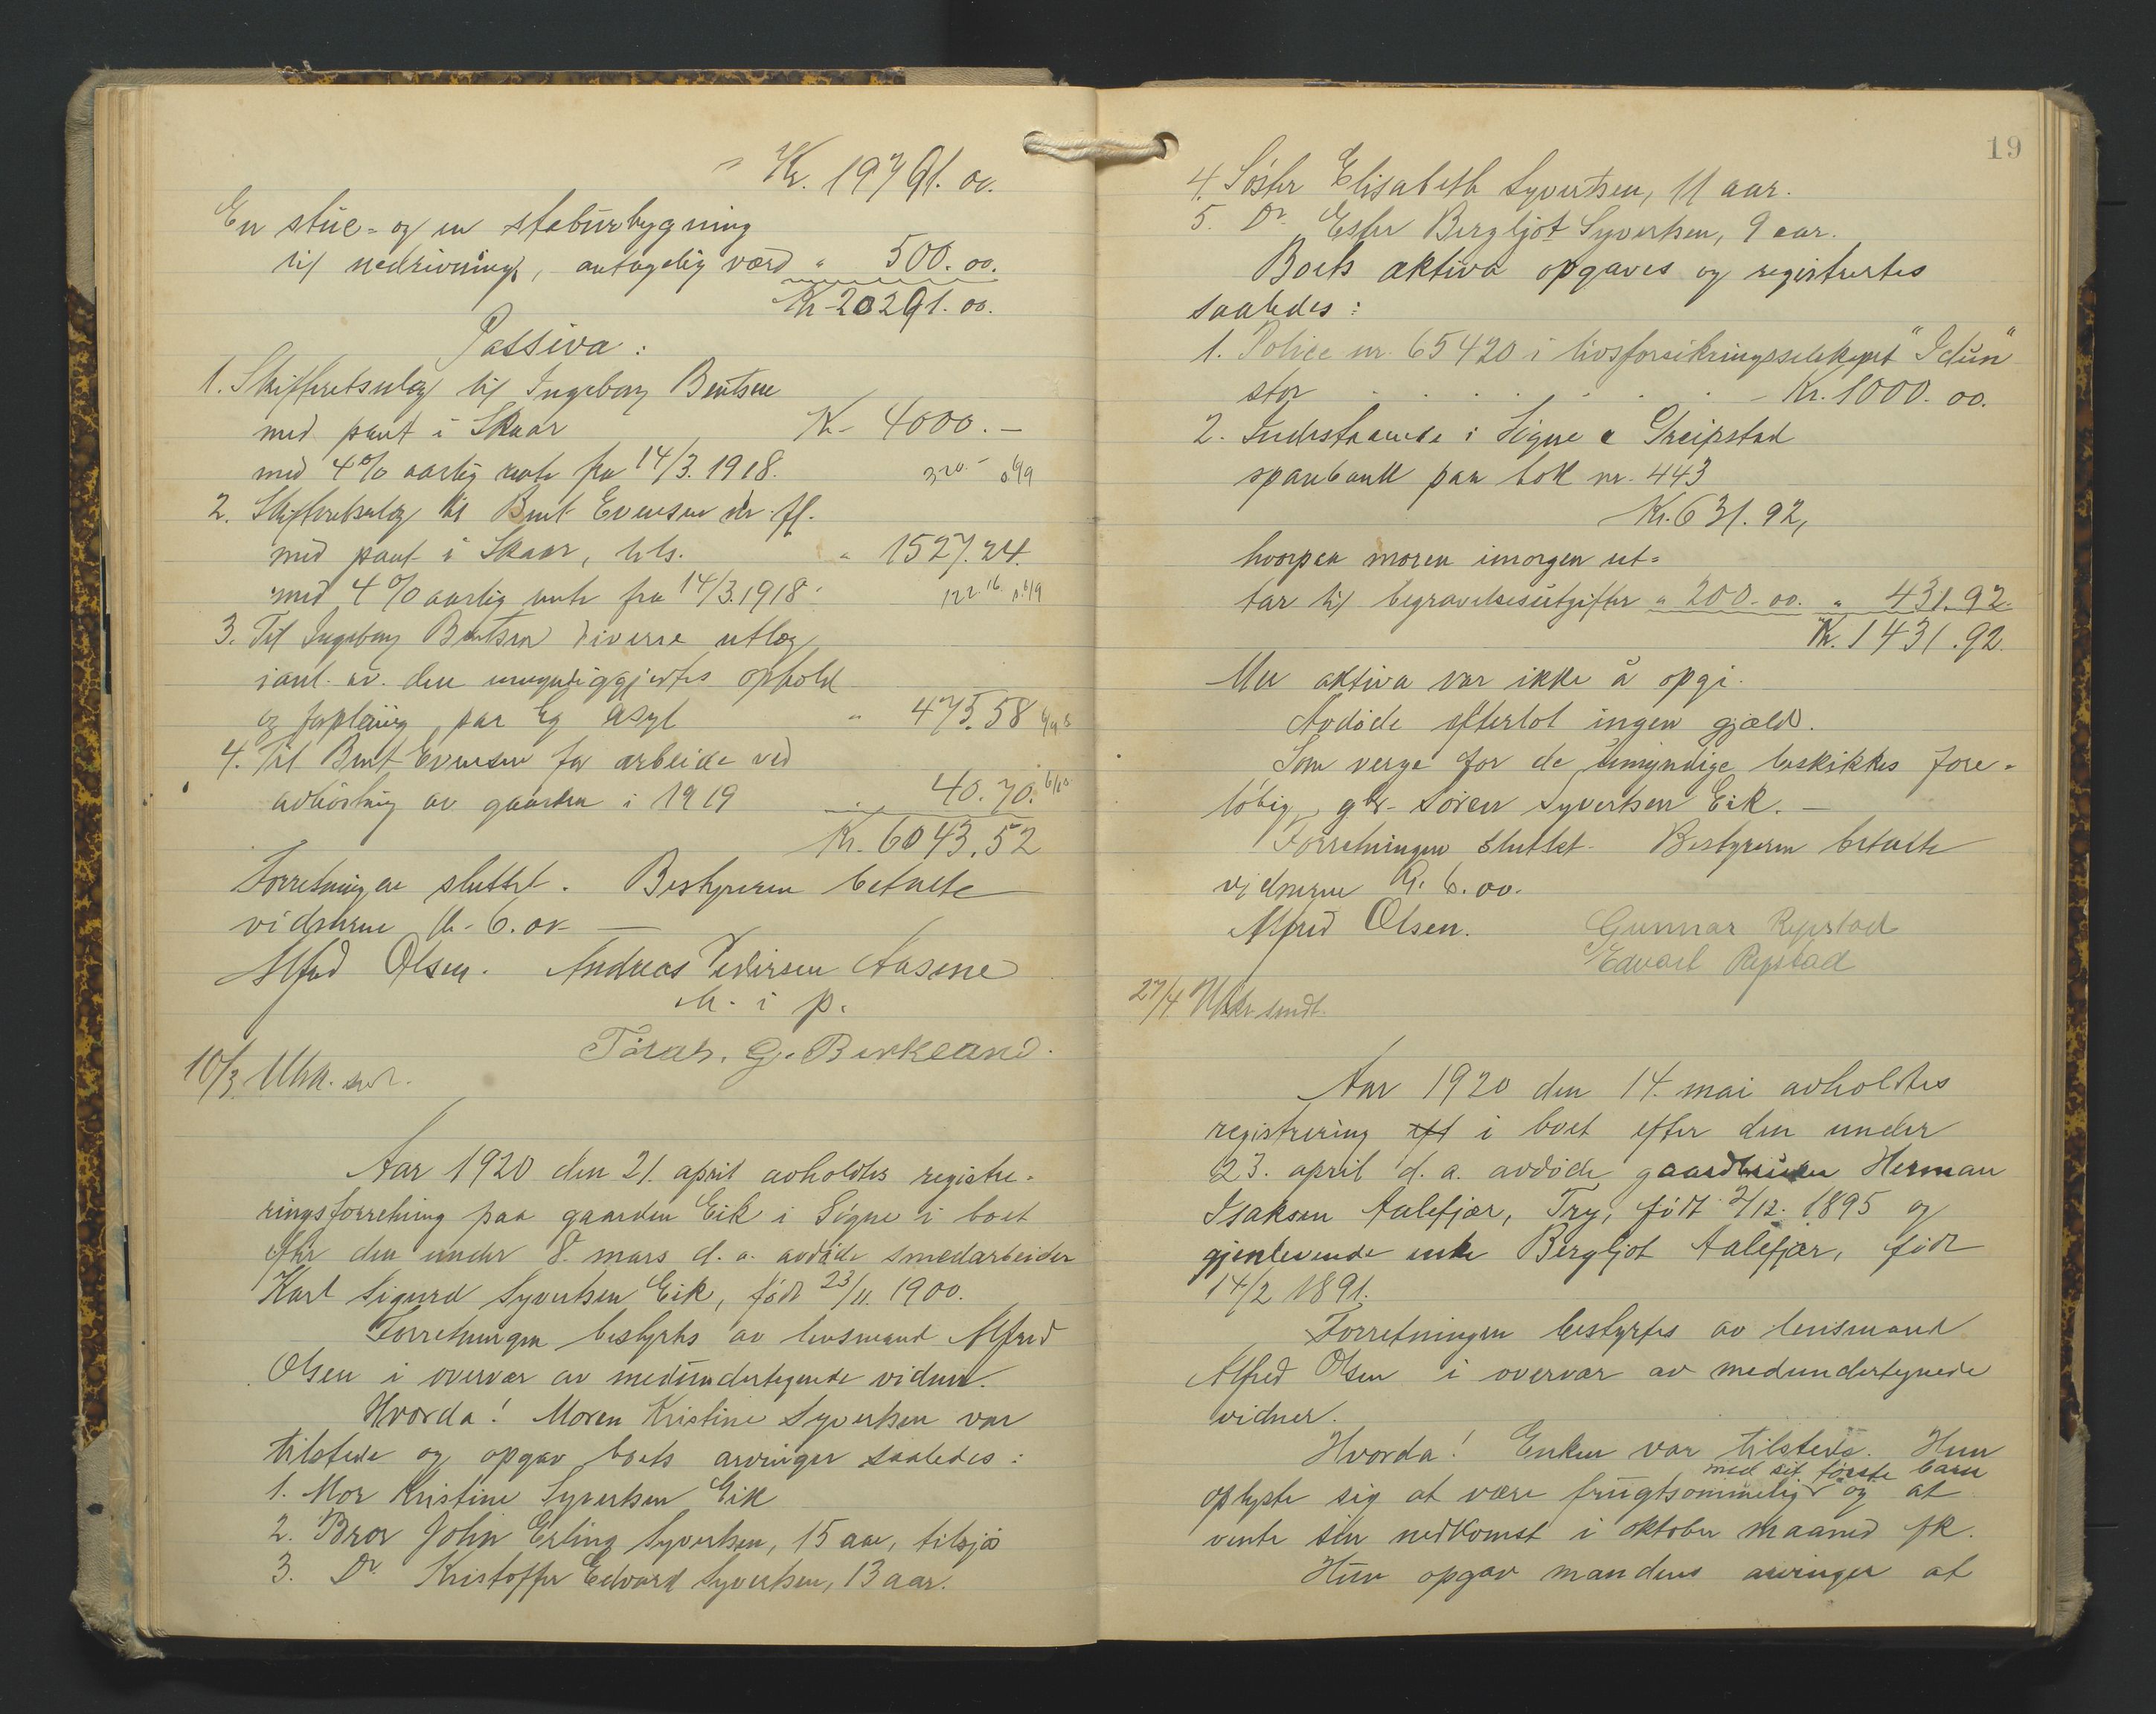 " Kr. 19791.00.
En stue- og en stabursbygning
til nedrivning, antagelig værd " 500.00.
Kr 20291.00.
Passiva:
1. Skifteretsutlæg til Ingeborg Bentsen
med pant i Skaar Kr 4000.-
med 4% aarlig rente fra 14/3.1918. 320.-
2. Skifteretsutlæg til Bent Evensen
med pant i Skaar, " 1527.24.
med 4% aarlig rente fra 14/3.1918. 122.16
3. Til Ingeborg Bentsen diverse utlæg
i anl. av den umyndiggjortes ophold
og forpleining paa Eg asyl " 475.58
4. Til Bent Evensen for arbeide ved
avhøstning av gaarden i 1919 " 40.70.
Kr. 6043.52
Forretningen sluttet. Bestyreren betalte
vidnerne kr. 6.00
Alfred Olsen. Andreas Pedersen Aasene
m. i p.
G. Birkeland.
10/3
Aar 1920 den 21. april avholdtes registre-
ringsforretning paa gaarden Eik i Søgne i boet
efter den under 8. mars d. a. avdøde smedarbeider
Karl Sigurd Syvertsen Eik, født 23/11. 1900.
Forretningen bestyrtes av lensmand Alfred
Olsen i overvær av medundertegnede vidner.
Hvorda! Moren Kristine Syvertsen var
tilstede og opgav boets arvinger saaledes:
1. Mor Kristine Syvertsen Eik
2. Bror John Erling Syvertsen, 15 aar, tilsjøs
3. Do Kristoffer Edvard Syvertsen, 13 aar.
19
4. Søster Elisabeth Syvertsen, 11 aar.
5. Do Ester Bergljot Syvertsen, 9 aar.
Boets aktiva opgaves og registrertes
saaledes:
1. Police nr. 65420 i livsforsikringsselskapet "Idun"
stor . . . . . . Kr. 1000.00.
2. Indestaaende i Søgne & Greipstad
sparebank paa bok nr. 443
Kr. 631.92,
hvorpaa moren imorgen ut-
tar til begravelsesutgifter " 200.00. " 431.92.
Kr. 1431.92.
Mer aktiva var ikke å opgi.
Avdøde efterlot ingen gjæld.
Som verge for de umyndige beskikkes fore-
løbig gbr. Søren Syvertsen Eik.-
Forretningen sluttet. Bestyreren betalte
vidnerne Kr. 6.00.
Alfred Olsen. Gunnar Repstad
Edvart Repstad
27/4 sendt.
Aar 1920 den 14. mai avholdtes
registrering eft i boet efter den under
23. april d. a. avdøde gaardbruker Herman
Isaksen Aalefjær, Try, født 2/12. 1895 og
gjenlevende enke Bergljot Aalefjær, født
14/2 1891.
Forretningen bestyrtes av lensmand
Alfred Olsen i overvær av medundertegnede
vidner.
Hvorda! Enken var tilstede. Hun
med sit første barn
oplyste sig at være frugtsommelig og at
vente sin nedkomst i oktober maaned fk.
Hun opgav mandens arvinger at